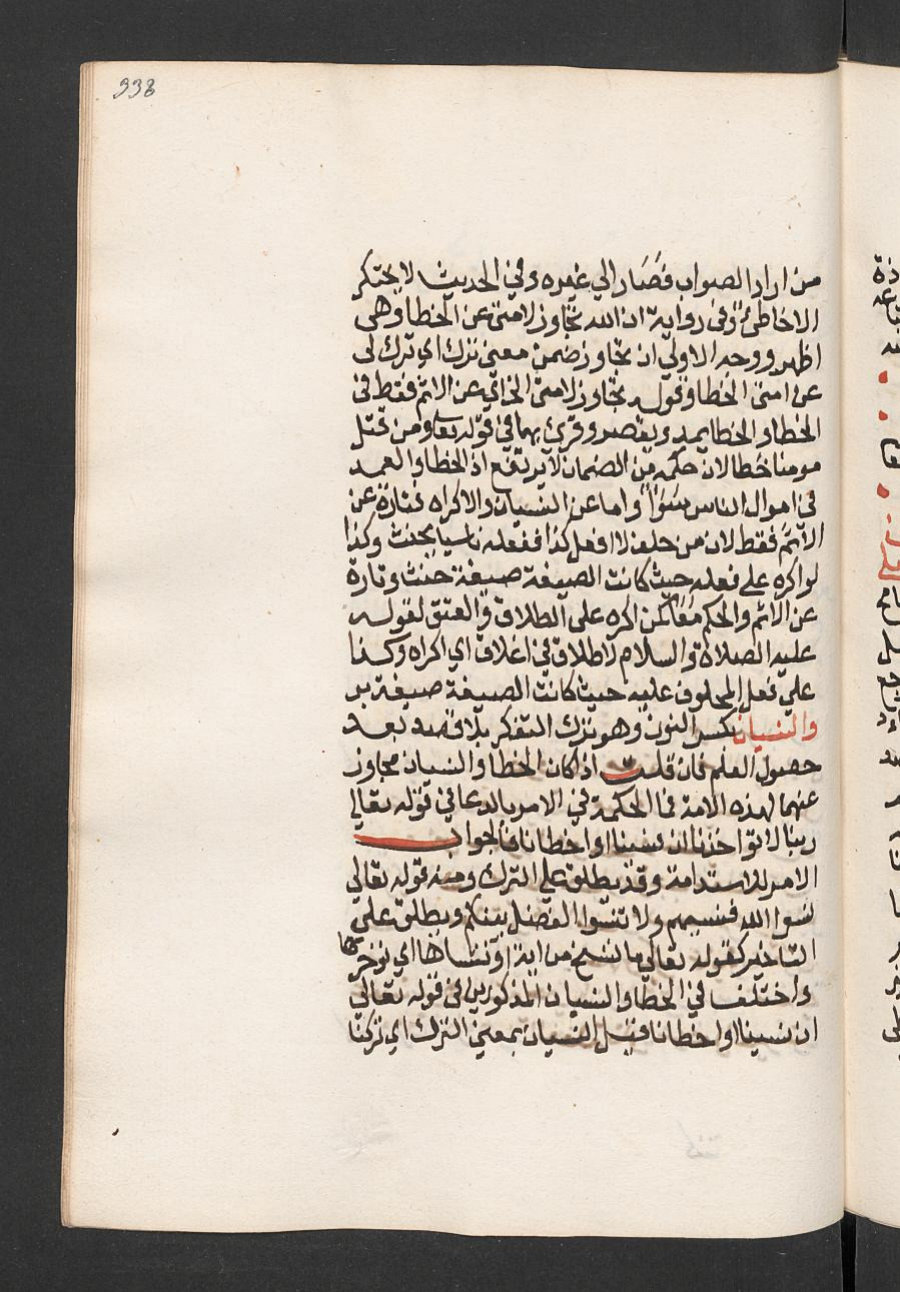 338
من اراد الصواب فصار الي غيره وفي الحديث لا يحتكر
الا خاطئ وفي رواية ان الله تجاوز لامتي عن الخطا وهي
اظهر ووجه الاولي ان تجاوز ضمن معني ترك اي ترك لي
عن امتي الخطا وقوله تجاوز لامتي الخ اي عن الاثم فقط في
الخطا والخطا يمد ويقصر وقرئ بهما في قوله تعا ومن قتل
مومنا خطا لان حكمه من الضمان لا يرتفع اذ الخطا والعمد
في اموال الناس سَوَآءٌ واما عن النسيان والاكراه فتارة عن
الاثم فقط لان من حلف لا افعل كذا ففعله ناسيا يحنث وكذا
لو اكره علي فعله حيث كانت الصيغة صيغة حنث وتارة
عن الاثم والحكم معا كمن اكره علي الطلاق والعتق لقوله
عليه الصلاة والسلام لا طلاق في اغلاق اي اكراه وكذا
علي فعل المحلوف عليه حيث كانت الصيغة صيغة بر
والنسيان بكسر النون وهو ترك التفكر بلا قصد بعد
حصول العلم فان قلت اذ كان الخطا والنسيان مجاوز
عنهما لهذه الامة فما الحكمة في الامر بالدعا في قوله تعالي
ربنا لا تواخذنا ان نسينا او اخطانا فالجواب
الامر للاستدامة وقد يطلق علي الترك ومنه قوله تعالي
نسوا الله فنسيهم ولا تنسوا الفضل بينكم ويطلق علي
التاخير كقوله تعالي ما ننسخ من اية او ننساها اي نوخرها
واختلف في الخطا والنسيان المذكورين في قوله تعالي
ان نسينا او اخطانا فقيل النسيان بمعني الترك اي تركنا